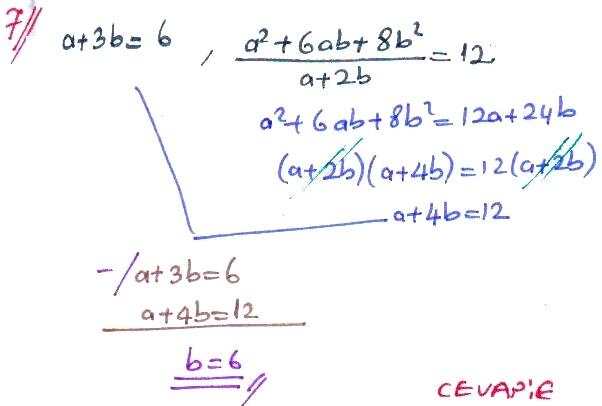 7// a+3b=6 , a²+6ab+8b² / a+2b = 12
a²+6ab+8b²=12a+24b
(a+2b)(a+4b)=12(a+2b)
a+4b=12
-/ a+3b=6
a+4b=12
b=6 //
CEVAP:E